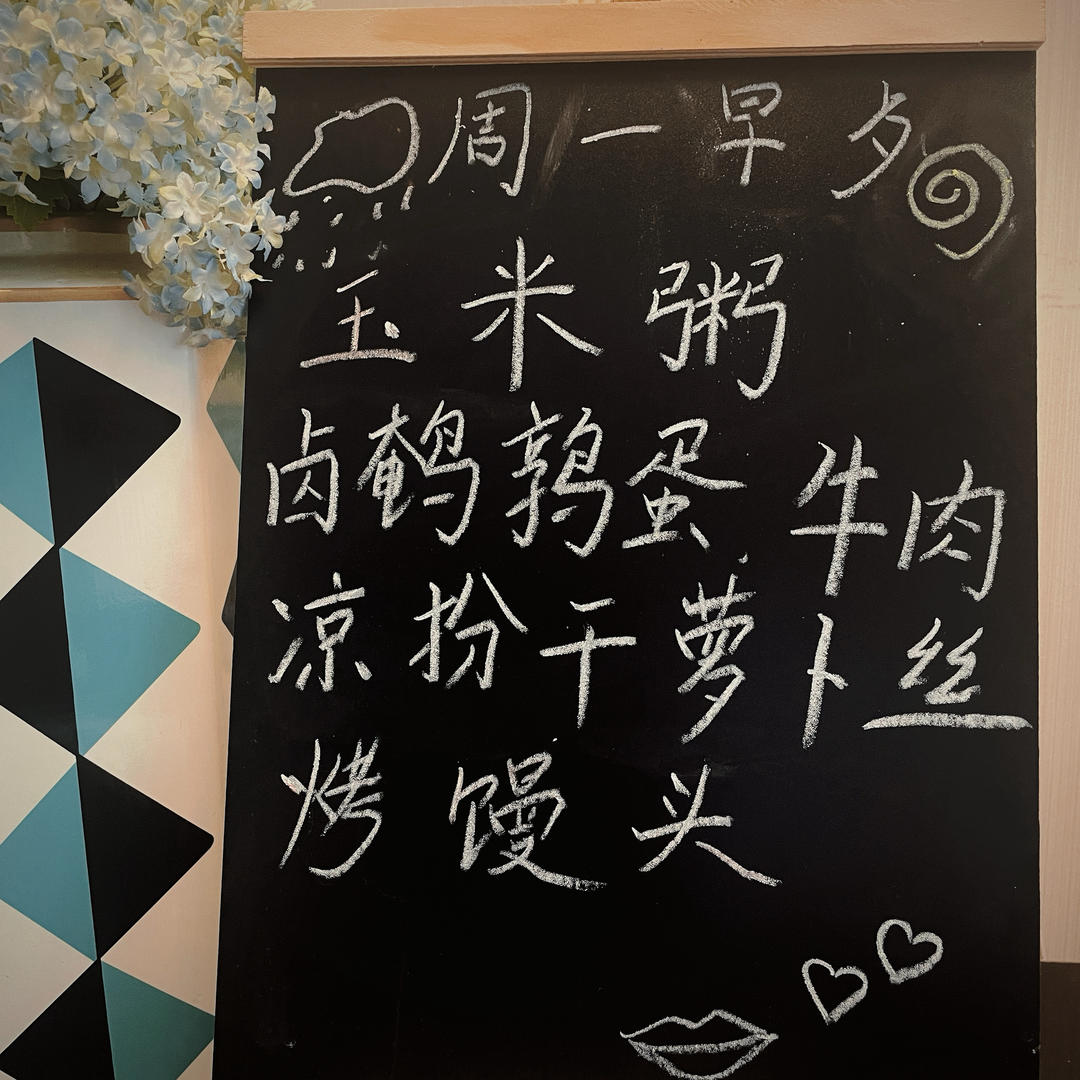 周一早歺
玉米粥
卤鹌鹑蛋 牛肉
凉扮干萝卜丝
烤馒头